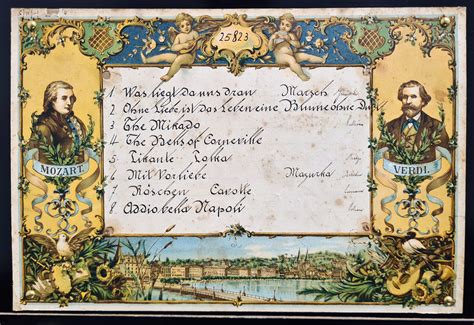 25823
1 Was liegt da uns dran Marsch
2 Ohne Liebe ist das Leben eine Blume ohne Duft
3 The Mikado
4 The Bells of Corneville
5 Pikante Polka
6 Mit Vorliebe Mazurka
7 Röschen Gavotte
8 Addio bella Napoli
MOZART.
VERDI.